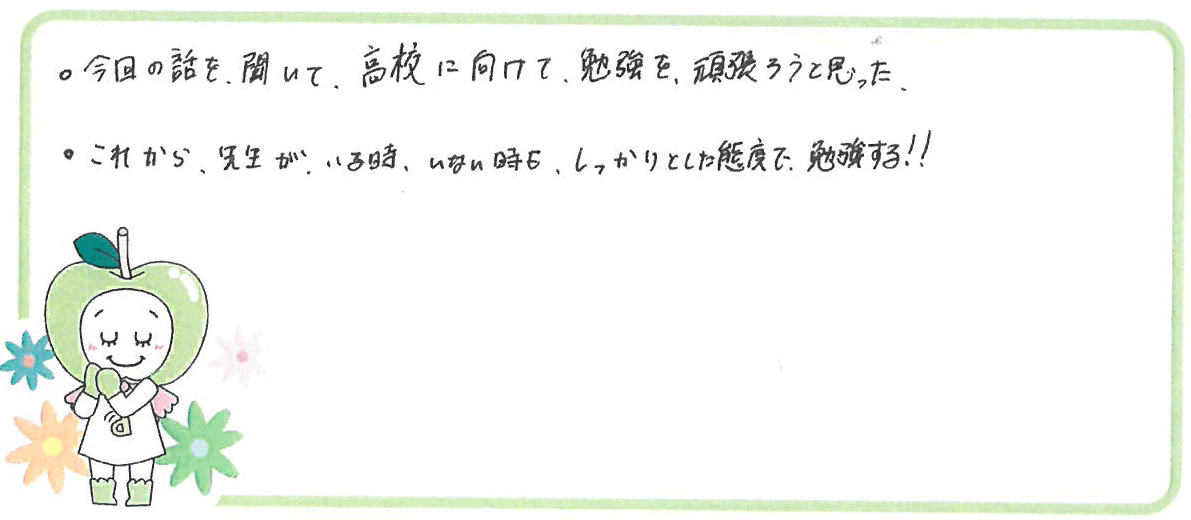 。今回の話を、聞いて、高校に向けて、勉強を、頑張ろうと思った、
・これから、先生が、いる時、いない時も、しっかりとした態度で、勉強する!!